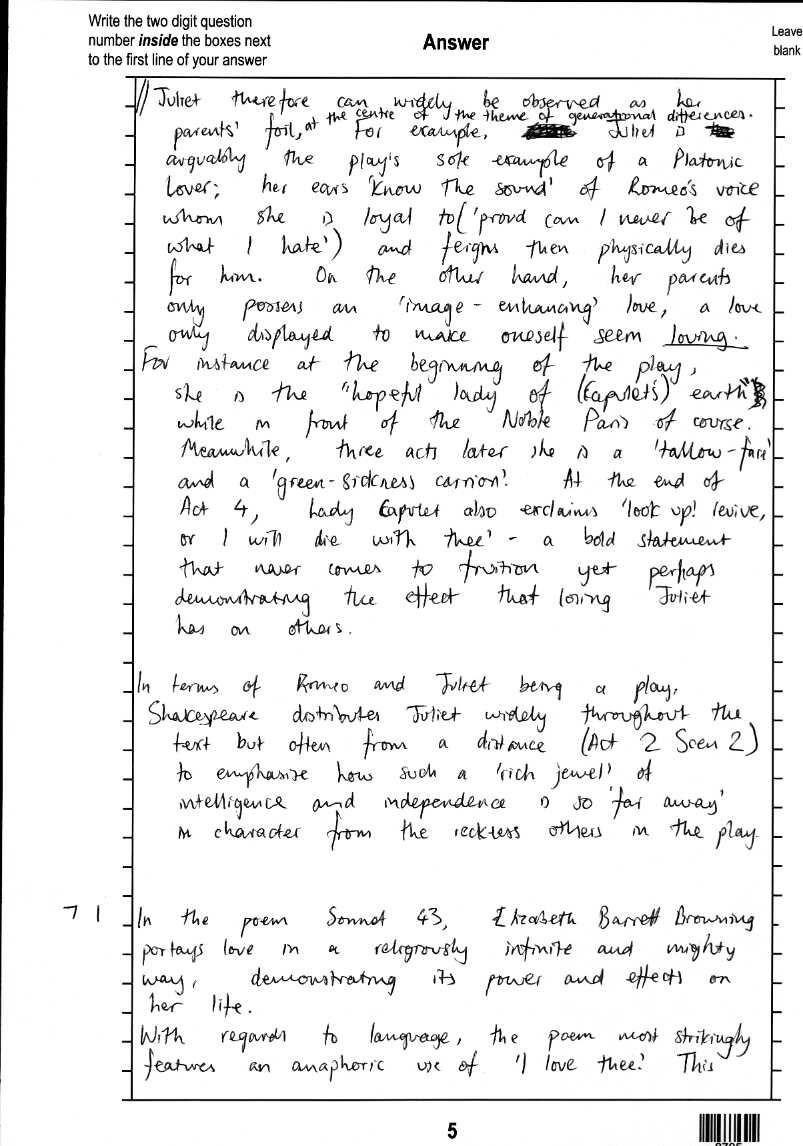 Write the two digit question
number inside the boxes next
to the first line of your answer
Answer
Leave
blank
// Juliet therefore can widely be observed as her
parents' foil, at the centre of the theme of generational differences.
For example, Juliet is
arguably the play's sole example of a Platonic
Lover; her ears 'know the sound' of Romeo's voice
whom she is loyal to ('proud can I never be of
what I hate') and feigns then physically dies
for him. On the other hand, her parents
only possess an 'image-enhancing' love, a love
only displayed to make oneself seem loving.
For instance at the beginning of the play,
she is the "hopeful lady of (Capulet's) earth"
while in front of the Noble Paris of course.
Meanwhile, three acts later she is a 'tallow-face'
and a 'green-sickness carrion'. At the end of
Act 4, Lady Capulet also exclaims 'look up! revive,
or I will die with thee' - a bold statement
that never comes to fruition yet perhaps
demonstrating the effect that losing Juliet
has on others.
In terms of Romeo and Juliet being a play,
Shakespeare distributes Juliet widely throughout the
text but often from a distance (Act 2 Scen 2)
to emphasise how such a 'rich jewel' of
intelligence and independence is so 'far away'
in character from the reckless others in the play.
7 1
In the poem Sonnet 43, Elizabeth Barrett Browning
portays love in a religiously infinite and mighty
way, demonstrating its power and effects on
her life.
With regards to language, the poem most strikingly
features an anaphoric use of 'I love thee'. This
5